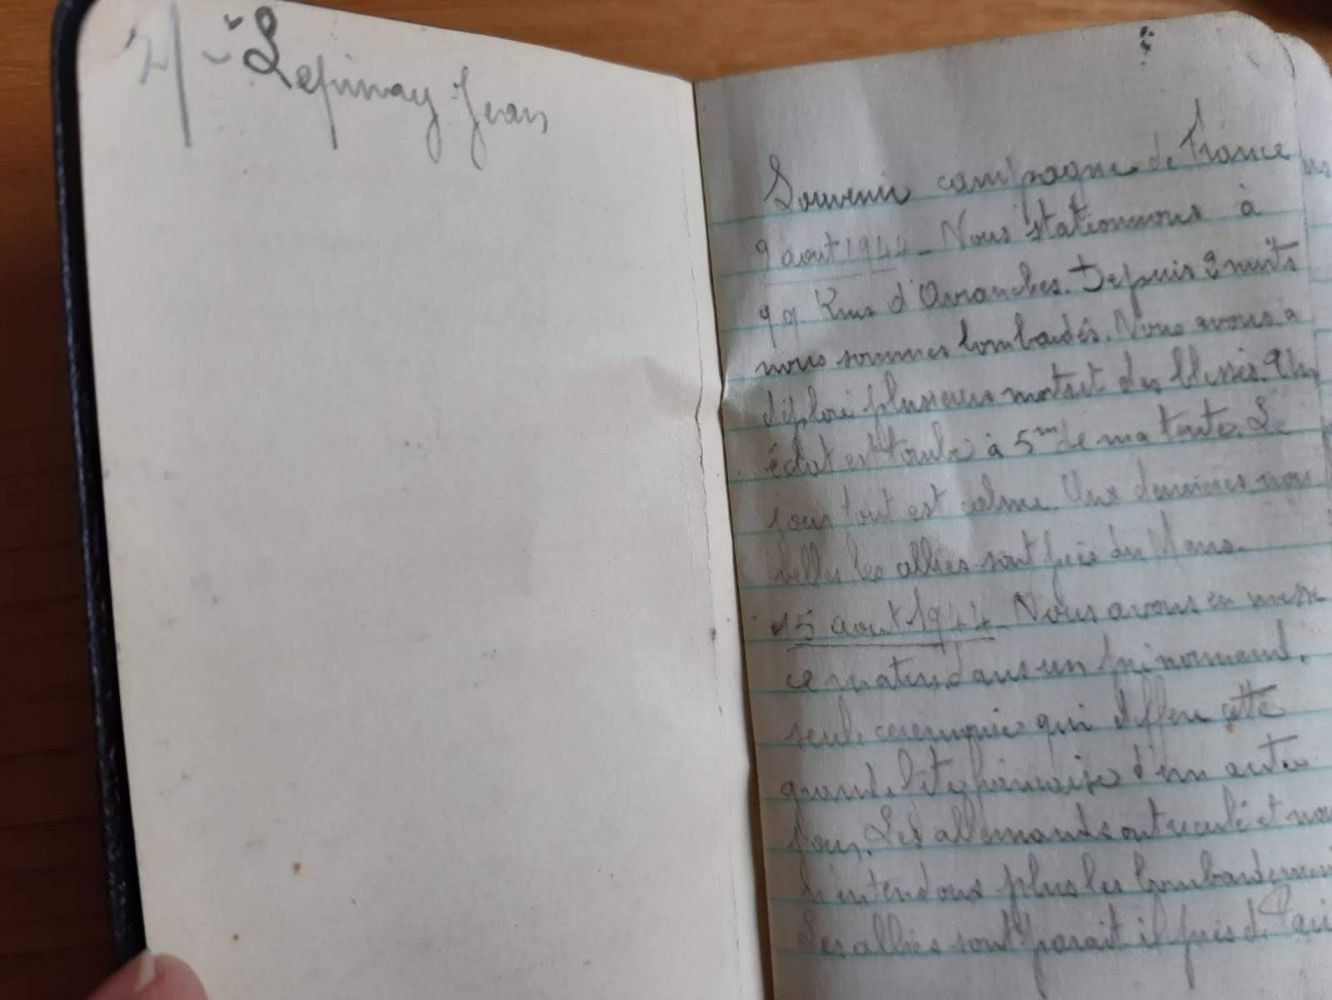 2/ - Lepinay Jean
Souvenir campagne de France
9 aout 1944 - Nous stationnons à
qq Kms d'Avranches. Depuis 2 nuits
nous sommes bombardés. Nous avons a
déploré plusieurs morts et des blessés. Un
éclat est tombé à 5m de ma tente. Le
jour tout est calme. Aux dernières nou
velles les alliés sont près du Mans.
15 aout 1944 - Nous avons eu messe
ce matin dans un pré normand,
seule ceremonie qui differe cette
grande fête d'un autre
jour. Les allemands ont reculé et nou
n'entendons plus les bombardemen
Les alliés sont parait il près de Pari